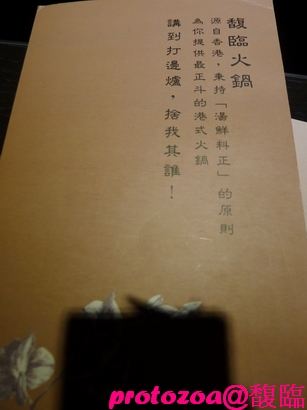 馥臨火鍋
源自香港，秉持「湯鮮料正」的原則
為你提供最正斗的港式火鍋
講到打邊爐，捨我其誰！
protozoa@馥臨